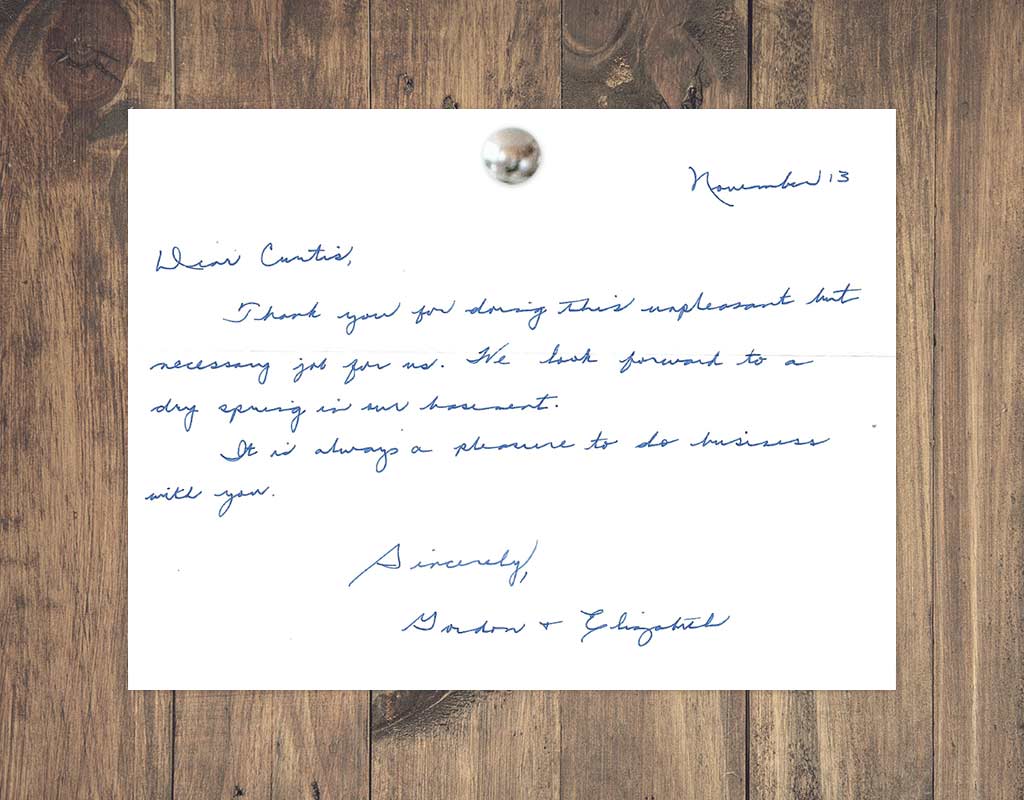 November 13
Dear Curtis,
Thank you for doing this unpleasant but
necessary job for us. We look forward to a
dry spring in our basement.
It is always a pleasure to do business
with you.
Sincerely,
Gordon + Elizabeth